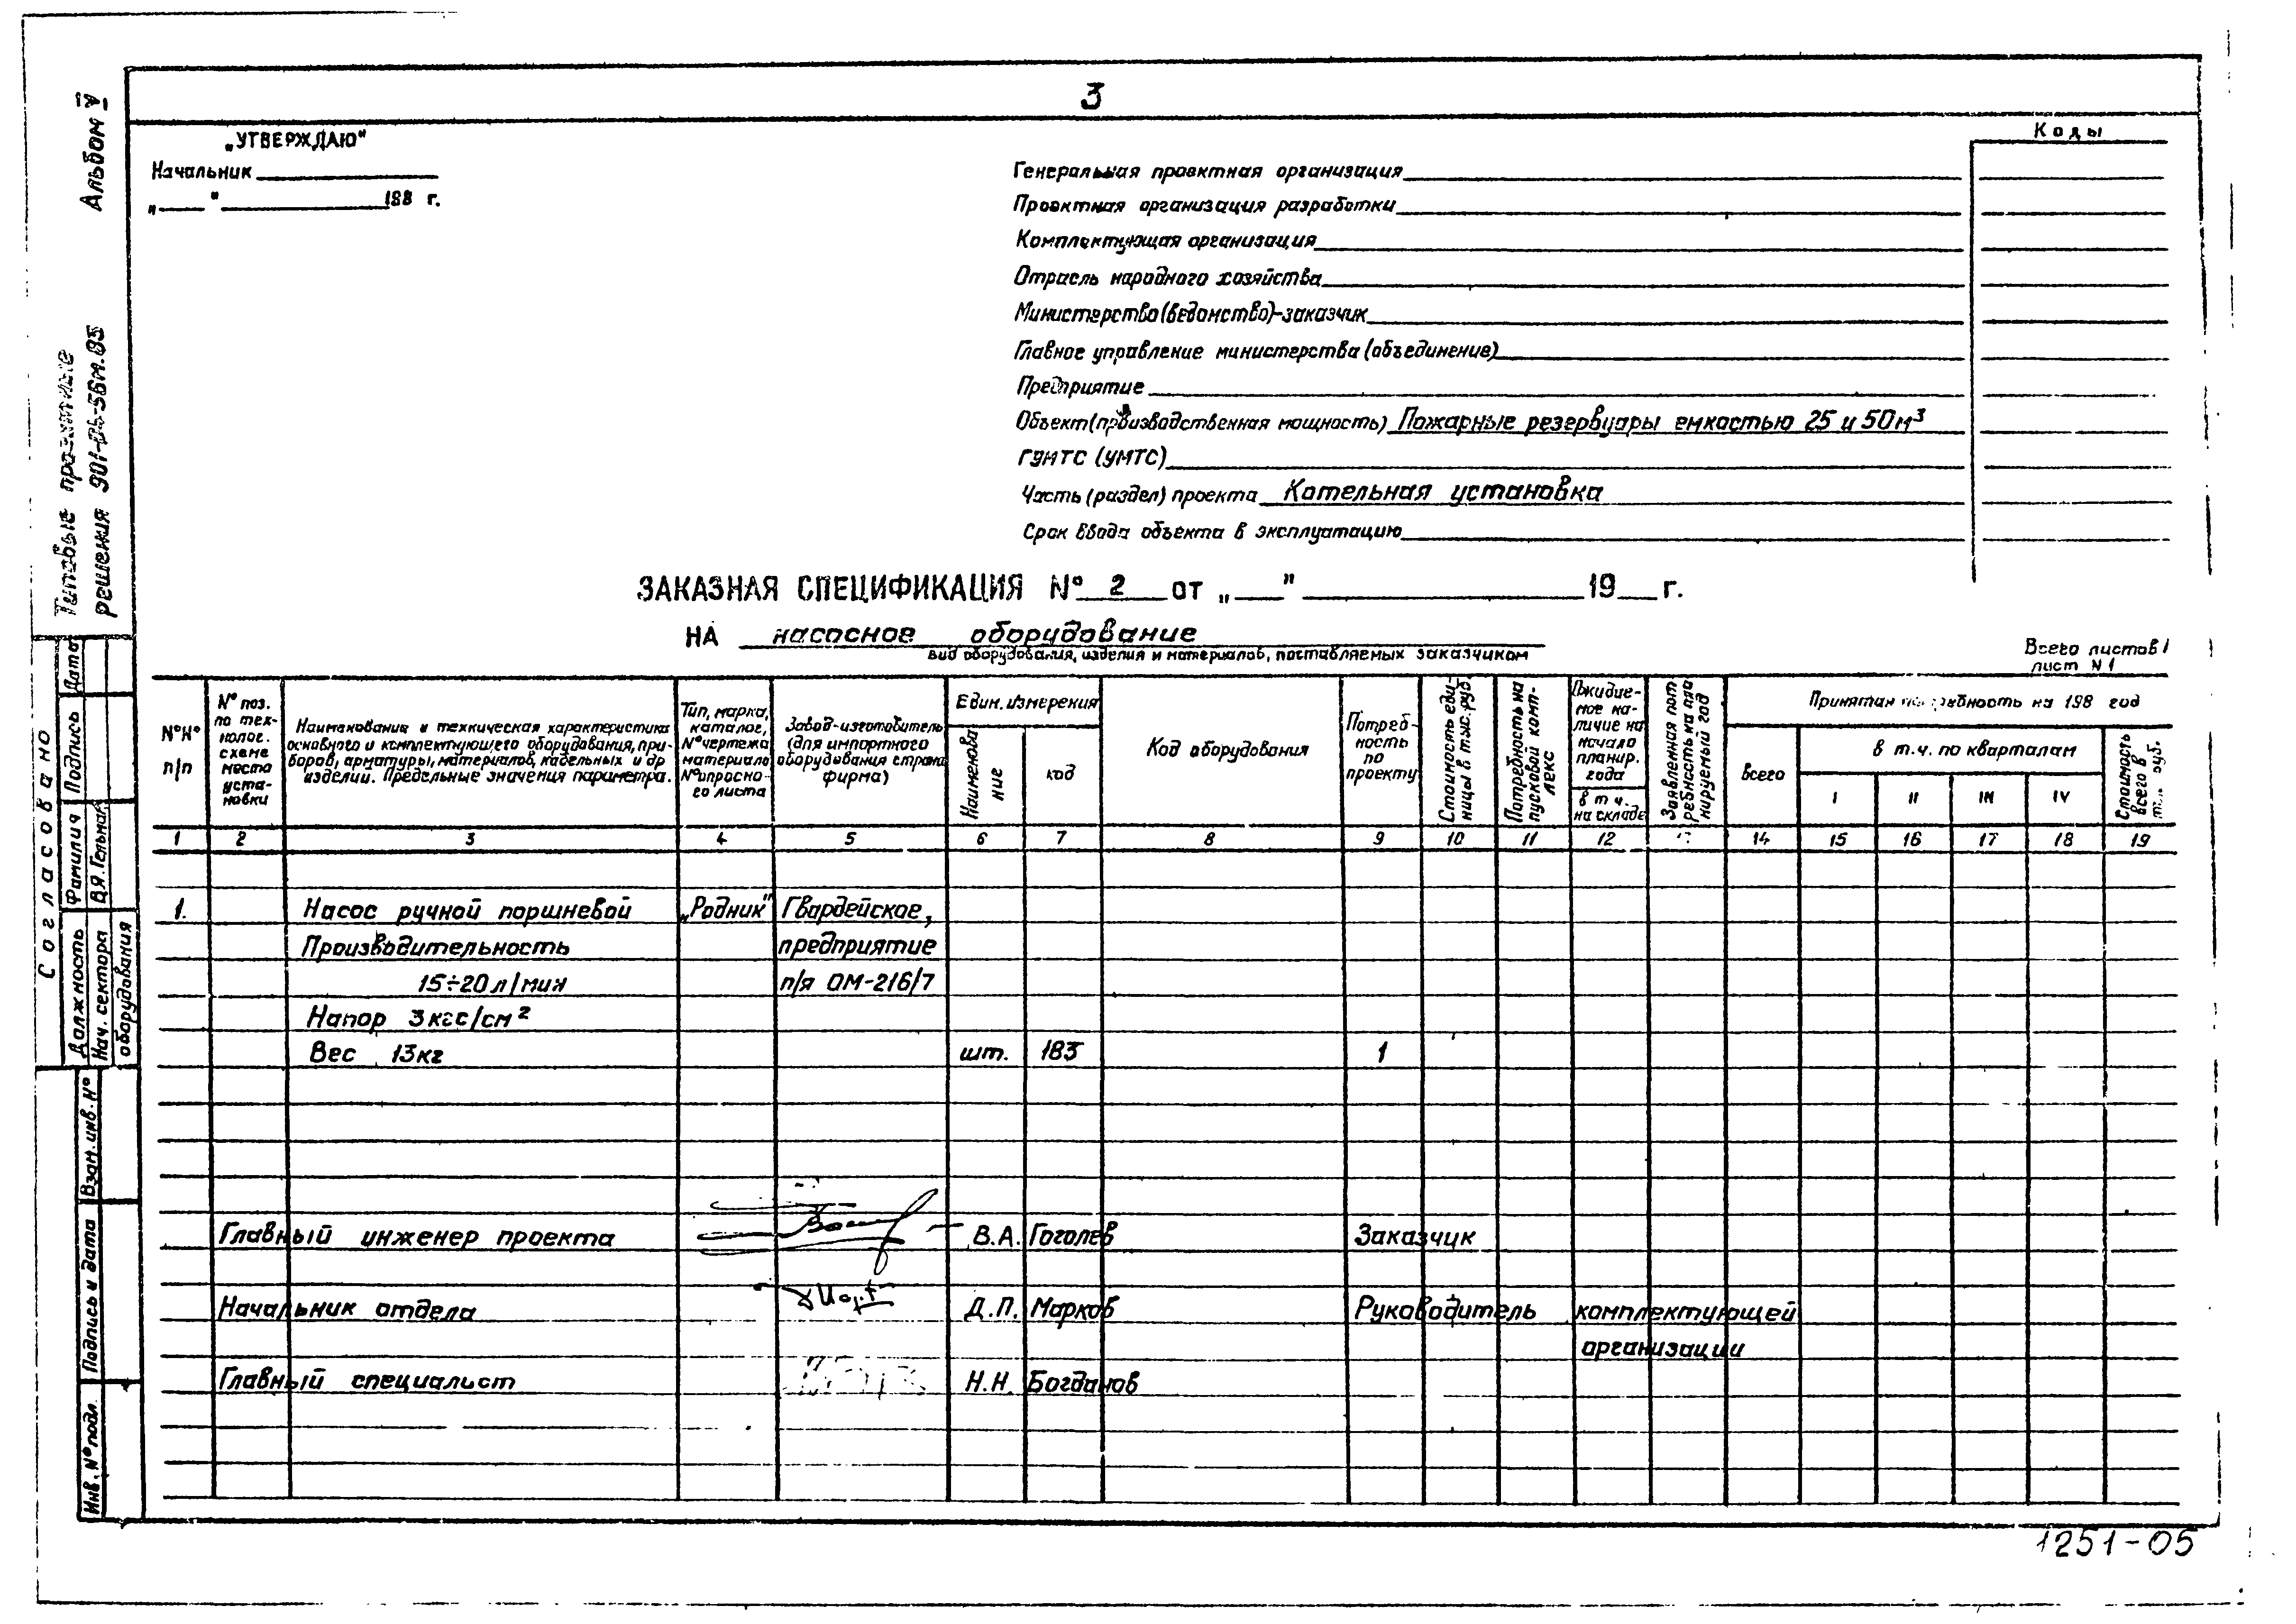 3
Альбом IV
Типовые проектные
решения 901-05-56м.85
„УТВЕРЖДАЮ"
Начальник
„ " 198 г.
Коды
Генеральная проектная организация
Проектная организация разработки
Комплектующая организация
Отрасль народного хозяйства
Министерство (ведомство)-заказчик
Главное управление министерства (объединение)
Предприятие
Объект (производственная мощность) Пожарные резервуары емкостью 25 и 50м³
ГУМТС (УМТС)
Часть (раздел) проекта Котельная установка
Срок ввода объекта в эксплуатацию
ЗАКАЗНАЯ СПЕЦИФИКАЦИЯ №2 от „ " 19 г.
НА насосное оборудование
вид оборудования, изделия и материалов, поставляемых заказчиком
Всего листов 1
лист N 1
№№ п/п
№ поз. по технолог. схеме места установки
Наименование и техническая характеристика
основного и комплектующего оборудования, при-
боров, арматуры, материалов, кабельных и др
изделии. Предельные значения параметра.
Тип, марка,
каталог,
№ чертежа
материало
№ опросно-
го листа
Завод-изготовитель
(для импортного
оборудования страна
фирма)
Един. измерения
Наименова
ние
код
Код оборудования
Потреб-
ность
по
проекту
Стоимость еди-
ницы в тыс. руб.
Потребность на
пусковой комп-
лекс
Ожидае-
мое на-
личие на
начало
планир.
года
в т ч.
на складе
Заявленная пот
ребность на пла
нируемый год
Принятая потребность на 198 год
всего
в т.ч. по кварталам
I II III IV
Стоимость
всего в
тыс. руб.
1 2 3 4 5 6 7 8 9 10 11 12 14 15 16 17 18 19
1. Насос ручной поршневой „Родник" Гвардейское,
Производительность предприятие
15÷20 л/мин п/я ОМ-216/7
Напор 3 кгс/см²
Вес 13кг шт. 183 1
Главный инженер проекта В.А. Гоголев Заказчик
Начальник отдела Д.П. Марков Руководитель комплектующей
организации
Главный специалист Н.Н. Богданов
Согласовано
Должность Фамилия Подпись Дата
Нач. сектора
оборудования
Взам. инв. №
Подпись и дата
Инв. № подл.
1251-05